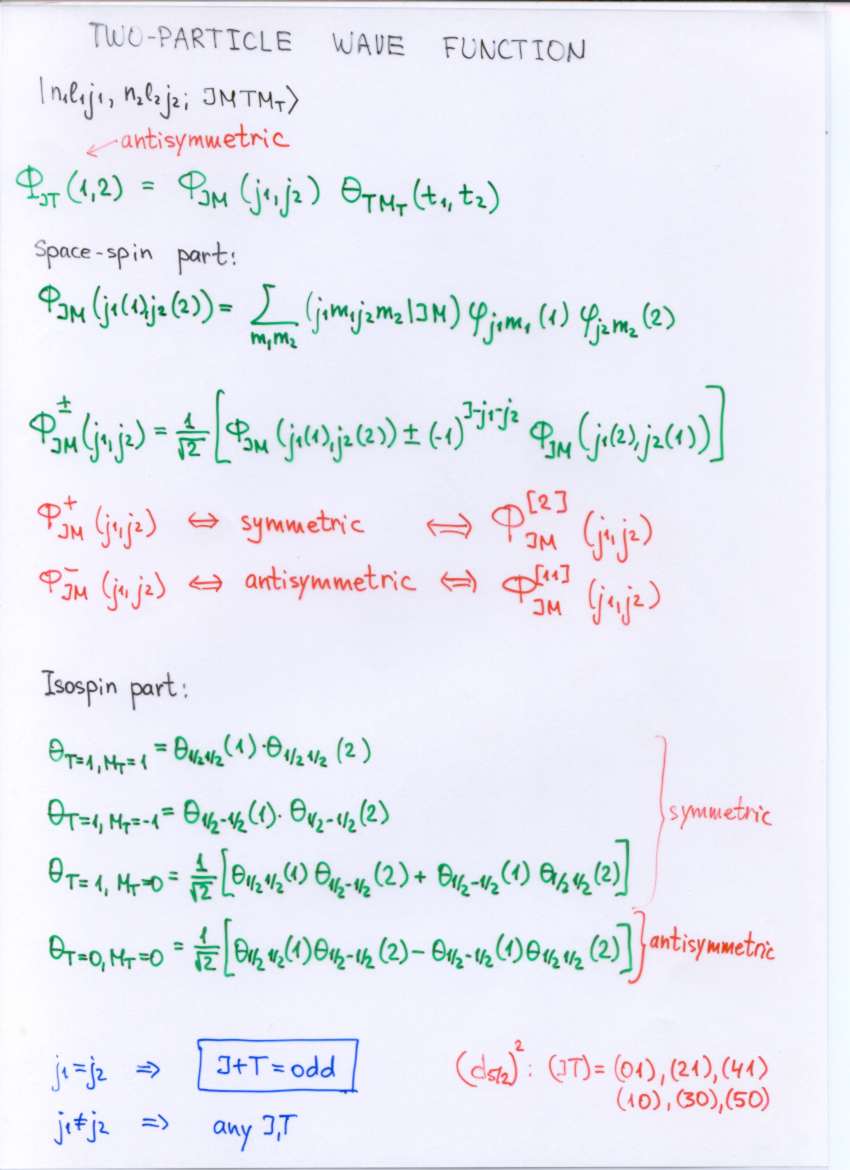 TWO-PARTICLE WAVE FUNCTION
|n₁l₁j₁, n₂l₂j₂; JMTM_T⟩
antisymmetric
Φ_JT (1,2) = Φ_JM (j₁,j₂) Θ_TM_T (t₁, t₂)
Space-spin part:
Φ_JM (j₁(1),j₂(2)) = ∑_m₁m₂ (j₁m₁j₂m₂|JM) φ_j₁m₁ (1) φ_j₂m₂ (2)
Φ^±_JM (j₁,j₂) = 1/√2 [Φ_JM (j₁(1),j₂(2)) ± (-1)^J-j₁-j₂ Φ_JM (j₁(2),j₂(1))]
Φ^+_JM (j₁,j₂) ⇔ symmetric ⟺ Φ^[2]_JM (j₁,j₂)
Φ^-_JM (j₁,j₂) ⇔ antisymmetric ⟺ Φ^[11]_JM (j₁,j₂)
Isospin part:
Θ_T=1, M_T=1 = Θ_1/2 1/2 (1) · Θ_1/2 1/2 (2)
Θ_T=1, M_T=-1 = Θ_1/2 -1/2 (1) · Θ_1/2 -1/2 (2)
symmetric
Θ_T=1, M_T=0 = 1/√2 [Θ_1/2 1/2 (1) Θ_1/2 -1/2 (2) + Θ_1/2 -1/2 (1) Θ_1/2 1/2 (2)]
Θ_T=0, M_T=0 = 1/√2 [Θ_1/2 1/2 (1) Θ_1/2 -1/2 (2) - Θ_1/2 -1/2 (1) Θ_1/2 1/2 (2)] antisymmetric
j₁=j₂ ⇒ J+T=odd (d_5/2)^2 : (JT) = (01), (21), (41)
(10), (30), (50)
j₁≠j₂ ⇒ any J,T